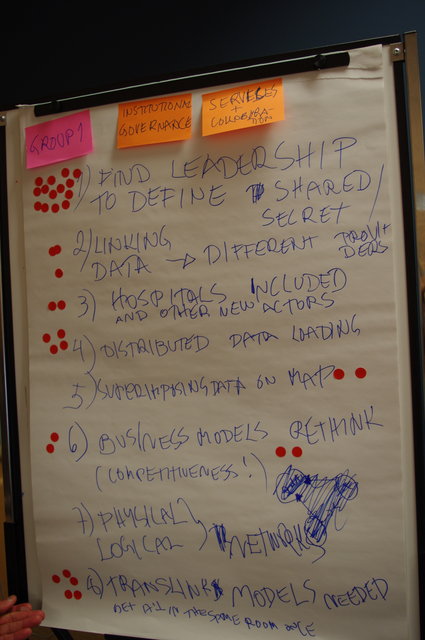 GROUP 1
INSTITUTIONAL
GOVERNANCE
SERVICES
+
COLLABORA-
TION
1) FIND LEADERSHIP
TO DEFINE SHARED/
SECRET
2) LINKING
DATA → DIFFERENT PROVI-
DERS
3) HOSPITALS INCLUDED
AND OTHER NEW ACTORS
4) DISTRIBUTED DATA LOADING
5) SUPERIMPOSING DATA ON MAP
6) BUSINESS MODELS RETHINK
(COMPETITIVENESS!)
7) PHYSICAL
LOGICAL) NETWORKS
8) TRANSLINK MODELS NEEDED
GET ALL IN THE SAME ROOM ONCE